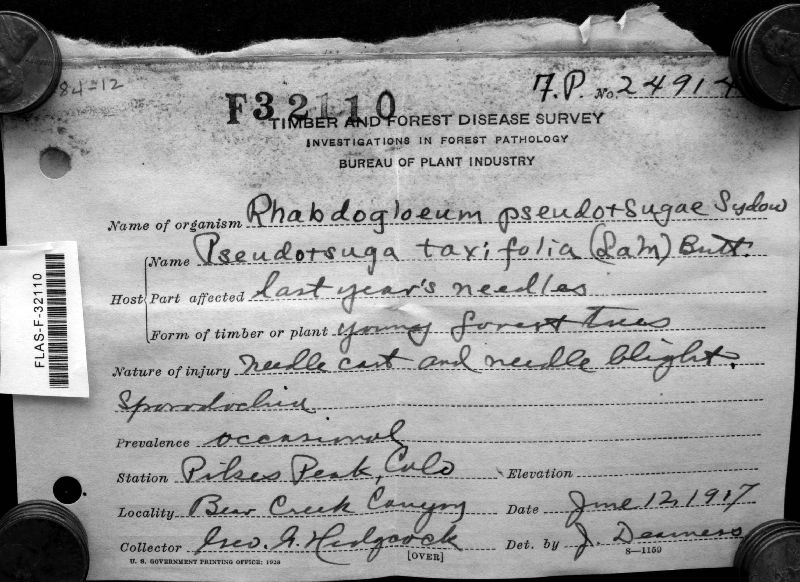 84-12
F32110
F.P. No. 24914
TIMBER AND FOREST DISEASE SURVEY
INVESTIGATIONS IN FOREST PATHOLOGY
BUREAU OF PLANT INDUSTRY
Name of organism Rhabdogloeum pseudotsugae Sydow
Host Name Pseudotsuga taxifolia (Lam) Britt.
Part affected last year's needles
Form of timber or plant young forest trees
Nature of injury needle cast and needle blight.
Sporodochia
Prevalence occasional
Station Pikes Peak, Colo Elevation
Locality Bear Creek Canyon Date June 12, 1917
Collector Geo. G. Hedgcock Det. by J. Dearness
U. S. GOVERNMENT PRINTING OFFICE: 1928 [OVER] 8—1159
FLAS-F-32110